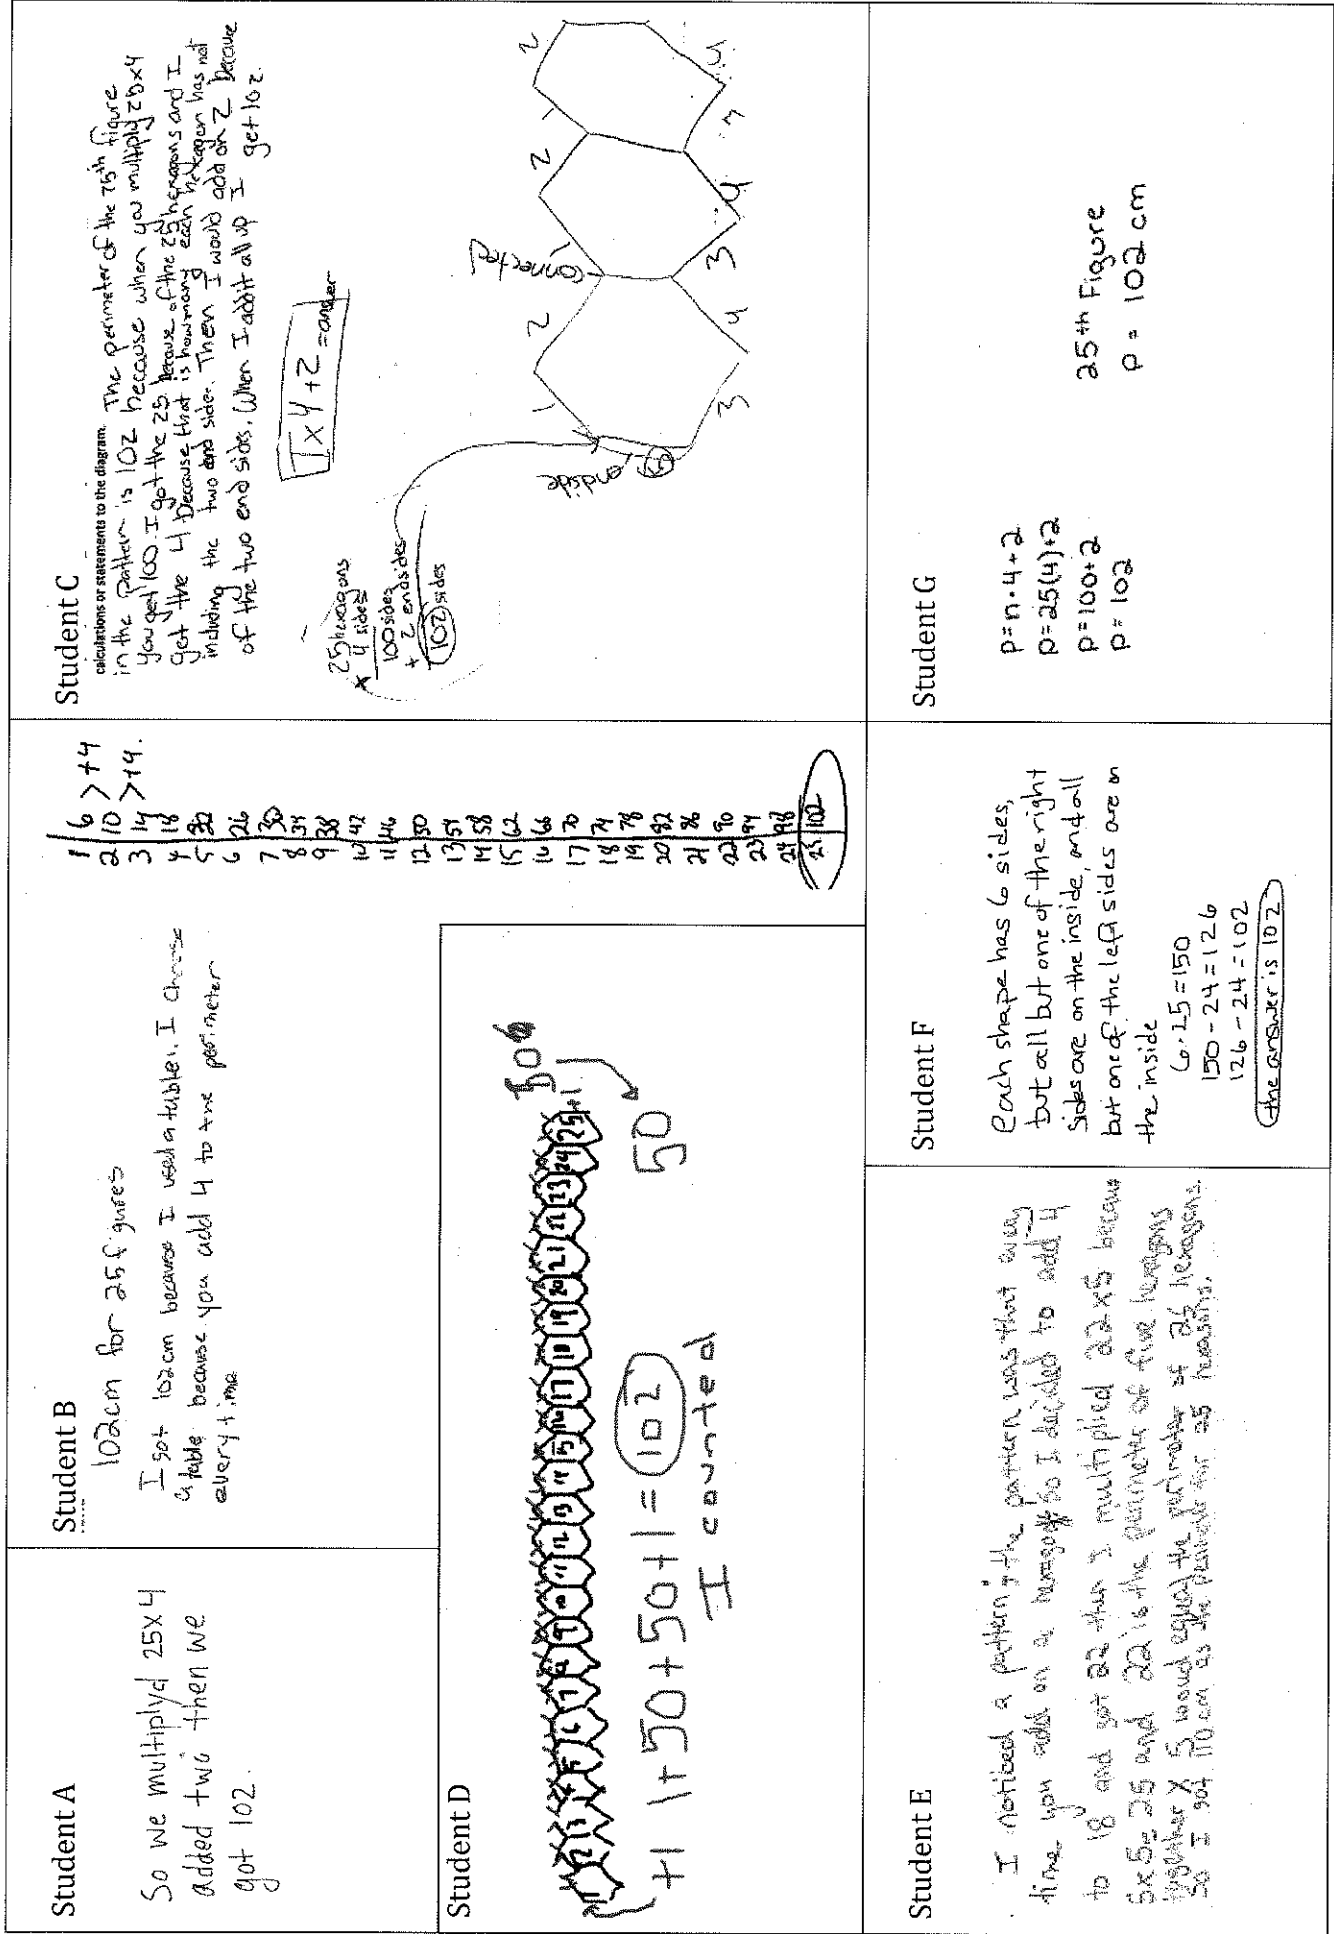 Student A
So we multiplyd 25x4
added two then we
got 102.
Student B
102cm for 25 figures
I got 102cm because I used a table. I choose
a table because you add 4 to the perimeter
every time
1 6 >+4
2 10 >+4.
3 14
4 18
5 22
6 26
7 30
8 34
9 38
10 42
11 46
12 50
13 54
14 58
15 62
16 66
17 70
18 74
19 78
20 82
21 86
22 90
23 94
24 98
25 102
Student C
calculations or statements to the diagram. The perimeter of the 25th figure
in the pattern is 102 because when you multiply 25x4
you get 100. I got the 25 because of the 25 hexagons and I
get the 4 because that is how many each hexagon has not
including the two end sides. Then I would add on 2 because
of the two end sides. When I add it all up I get 102.
Tx4+2=answer
25 hexagons
x 4 sides
100 sides
+ 2 endsides
102 sides
1 2 1 2 1 2
endside
connected
3 4 3 4 3 4
Student D
1 2 3 4 5 6 7 8 9 10 11 12 13 14 15 16 17 18 19 20 21 22 23 24 25 +1
50
+1 1+50+50+1=102
I counted
Student E
I noticed a pattern; the pattern was that every
time you add on a hexagon So I decided to add 4
to 18 and got 22 then I multiplied 22x5 because
5x5=25 and 22 is the perimeter of five hexagons
together x 5 would equal the perimeter of 25 hexagons.
So I got 110 cm as the perimeter for 25 hexagons.
Student F
each shape has 6 sides,
but all but one of the right
sides are on the inside, and all
but one of the left sides are on
the inside
6·25=150
150-24=126
126-24=102
the answer is 102
Student G
p=n·4+2
p=25(4)+2
p=100+2
p=102
25th Figure
p=102cm